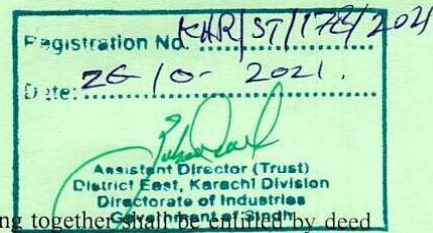 Registration No. KHR/ST/178/2021
Date: 26-10-2021.
Assistant Director (Trust)
District East, Karachi Division
Directorate of Industries
Government of Sindh
ng together shall be entitled by deed